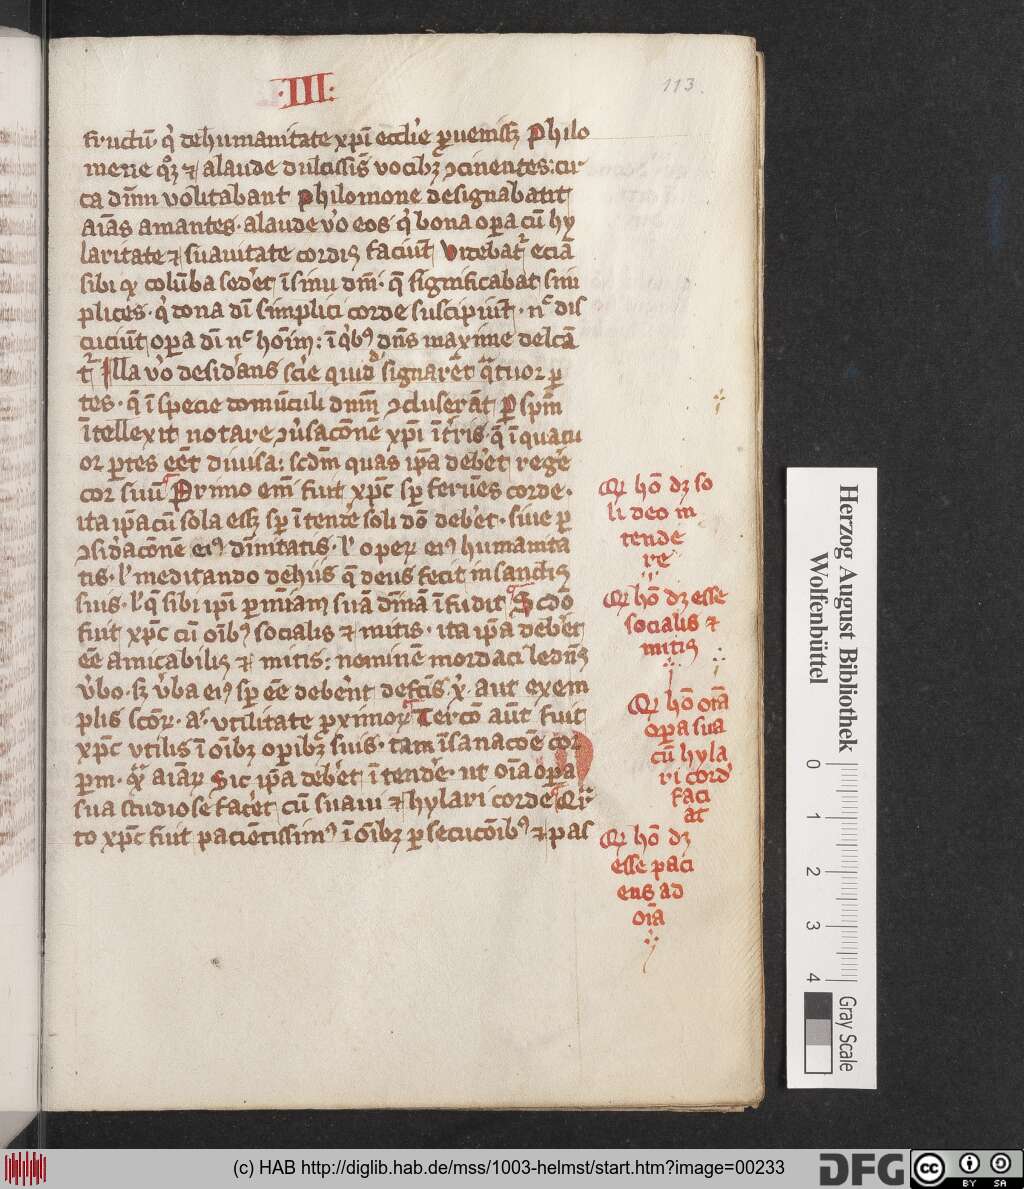 ·III·
113.
fructū· q̇ de humanitate xp̄i eccl̄ie ꝑuenissꝫ Philo
mene qꝫ ⁊ alaude dulcissīs vocibꝫ ꝯcinentes: cir
ca dūm volitabant philomone designabant
aīas amantes· alaude v̓o eos q̇ bona oꝑa cū hy
laritate ⁊ suauitate cordis faciūt Videbat᷑ eciā
sibi qꝫ colūba sed̓et ī sinu dn̄i· q̄ significabat sim
plices· q̇ dona dī simplici corde suscipiūt· nͨ dis
cuciūt oꝑa dī nͨ hōim: ī q̇bꝰ dn̄s maxime delc̄ā
t᷑ Illa v̓o desid̓ans sc̄ie quid signarēt q̄tuor ꝑ
tes· q̄ ī specie domūculi dn̄m ꝯcluserāt Ꝑ spm̄
ītellexit notare ꝯū̓sac̄onē xp̄i ī t̓ris· q̄ ī quatu
or ꝑtes eēt diuisa: scd̄m quas ip̄a deb̓et reg̓e
cor suū Primo em̄ fuit xp̄c sꝑ feruēs corde·
ita ip̄a cū sola essꝫ sꝑ ītend̓e soli dō deb̓et· siue ꝑ
ꝯsid̓ac̄onē eiꝰ diūitatis· l̓ operꝫ eiꝰ humanita
tis· l̓ meditando de hiis q̄ deus fecit in sanctis
suis· l̓ q̄ sibi ip̄i ꝑ mīam suā diūā īfudit Scdō
fuit xp̄c cū oībꝰ socialis ⁊ mitis· ita ip̄a deb̓et
eē amicabilis ⁊ mitis: neminē mordaci ledn̄s
v̓bo· sꝫ v̓ba eiꝰ sꝑ eē debēnt de fc̄is x̓· aut exem
plis sc̄oꝝ· aͭ· vtilitate ꝓximoꝝ Tercō aūt fuit
xp̄c vtilis ī oībꝫ oꝑibꝫ suis· tam ī sanac̄oē cor
ꝑm· qᷓ aīarꝫ Sic ip̄a deb̓et ītend̓e· ut oīa oꝑa
sua studiose facet cū suaui ⁊ hylari corde Qͬ
to xp̄c fuit pacietissimꝰ ī oībꝫ ꝑsecuc̄oībꝰ ⁊ pas
Qꝫ hō dꝫ so
li deo in
tende
re
Qꝫ hō dꝫ esse
socialis ⁊
mitis
Qꝫ hō oīa
oꝑa sua
cū hyla
ri cord̓
faci
at
Qꝫ hō dꝫ
esse paci
ens ad
oīa
Herzog August Bibliothek
Wolfenbüttel
0 1 2 3 4
Gray Scale
(c) HAB http://diglib.hab.de/mss/1003-helmst/start.htm?image=00233
DFG
cc BY SA